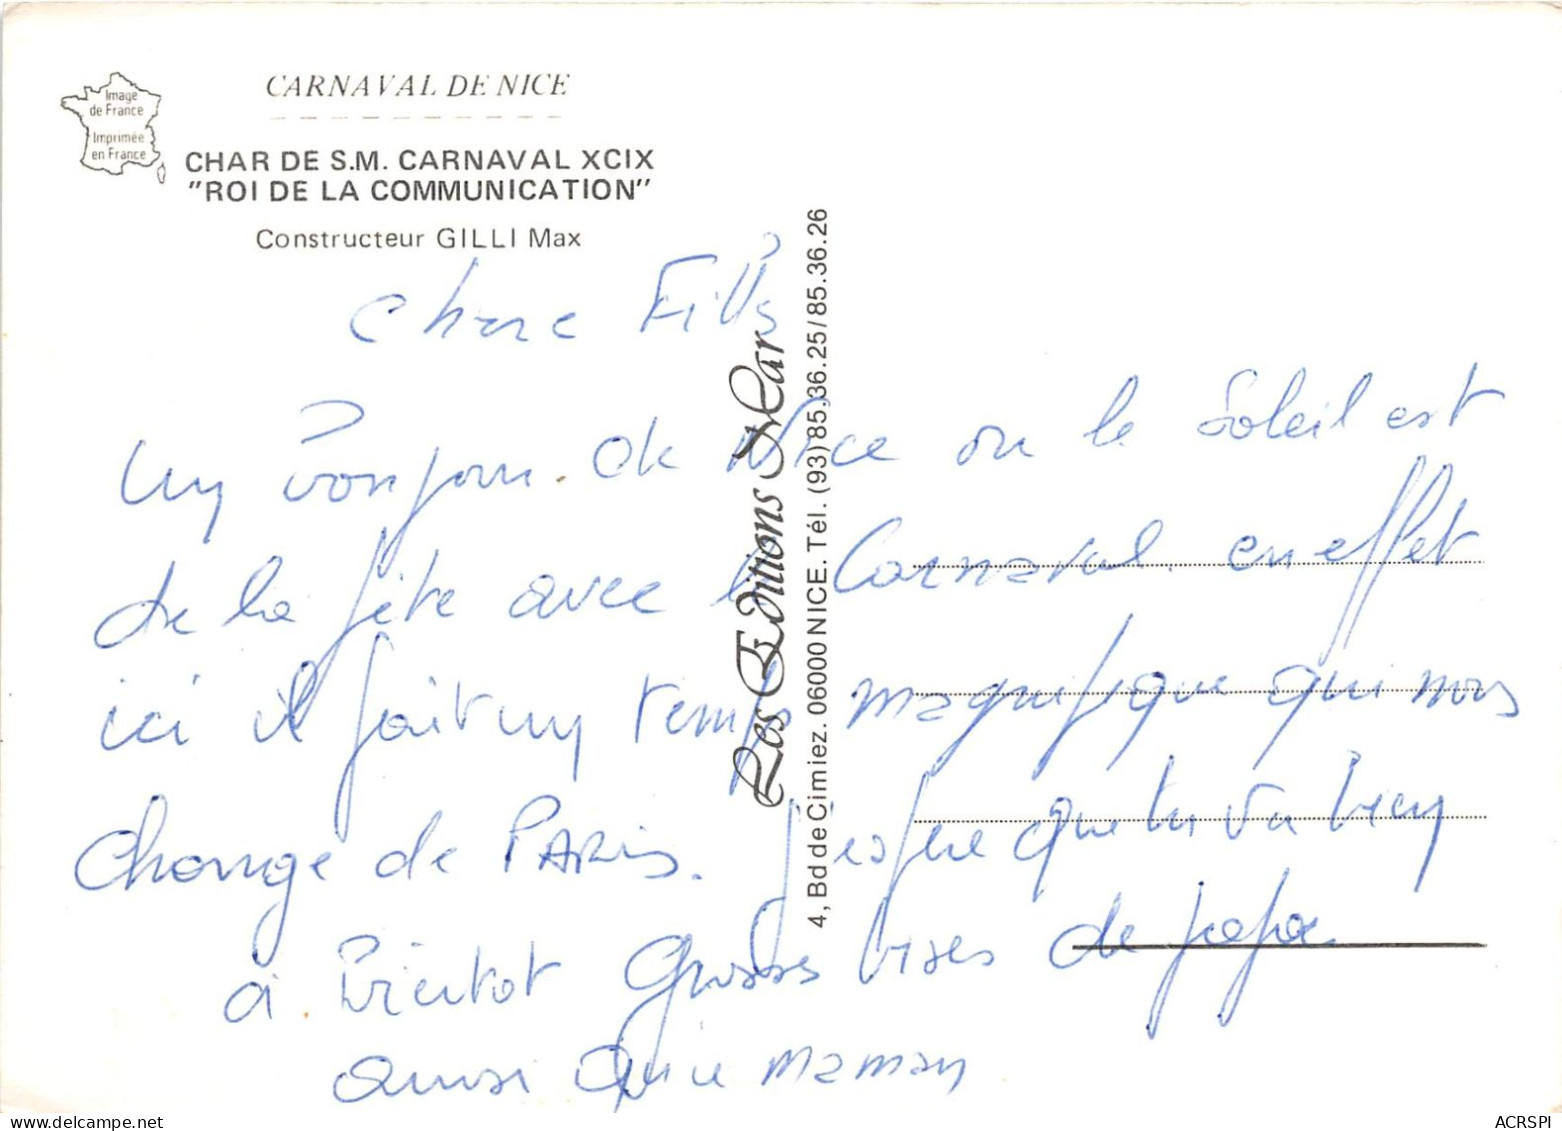 Image
de France
Imprimée
en France
CARNAVAL DE NICE
CHAR DE S.M. CARNAVAL XCIX
"ROI DE LA COMMUNICATION"
Constructeur GILLI Max
Les Editions Mar
4, Bd de Cimiez. 06000 NICE. Tél. (93) 85.36.25/85.36.26
Chere Filly
Un Bonjour. de Nice ou le Soleil est
de la fête avec le Carnaval. en effet
ici il fait un temps magnifique qui nous
change de PARis. j'espere que tu va bien
a Bientot Grosses bises de papa
ainsi que maman
ACRSPI